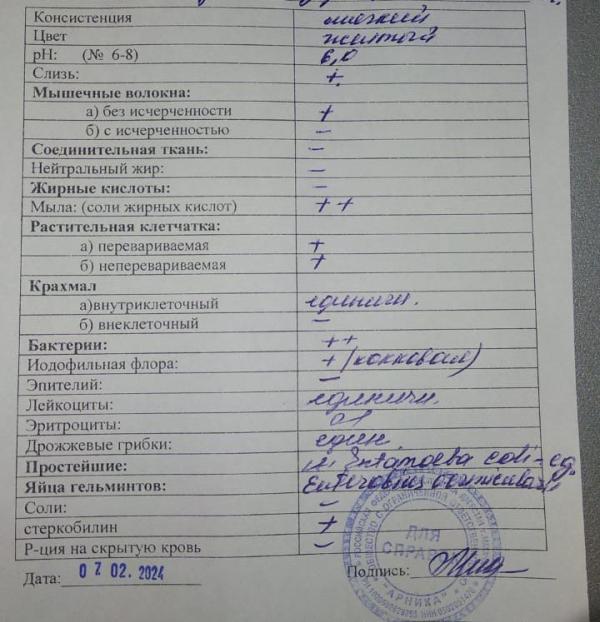 Консистенция мягкий
Цвет желтый
pH: (№ 6-8) 6,0
Слизь: +
Мышечные волокна:
а) без исчерченности +
б) с исчерченностью −
Соединительная ткань: −
Нейтральный жир: −
Жирные кислоты: −
Мыла: (соли жирных кислот) ++
Растительная клетчатка:
а) перевариваемая +
б) неперевариваемая +
Крахмал
а)внутриклеточный единичн.
б) внеклеточный −
Бактерии: ++
Иодофильная флора: + (кокковая)
Эпителий: −
Лейкоциты: единичн.
Эритроциты:
Дрожжевые грибки: един.
Простейшие: Entamoeba coli-ед.
Яйца гельминтов: Enterobius vermicularis
Соли: −
стеркобилин +
Р-ция на скрытую кровь −
Дата: 07 02. 2024 Подпись:
ДЛЯ
СПРАВОК
"АРНИКА"